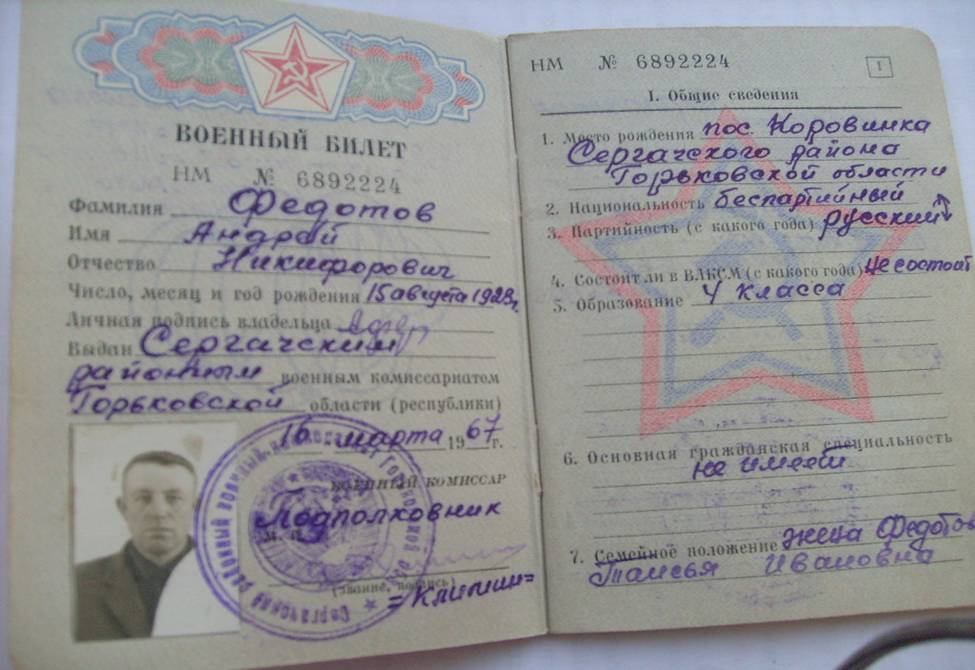 ВОЕННЫЙ БИЛЕТ
НМ № 6892224
Фамилия Федотов
Имя Андрей
Отчество Никифорович
Число, месяц и год рождения 15 августа 1928г.
Личная подпись владельца
Выдан Сергачским
районным военным комиссариатом
Горьковской области (республики)
16 марта 1967 г.
ВОЕННЫЙ КОМИССАР
Подполковник
М. П.
(звание, подпись)
НМ № 6892224
1
I. Общие сведения
1. Место рождения пос. Коровинка
Сергачского района
Горьковской области
2. Национальность беспартийный
3. Партийность (с какого года) русский
4. Состоит ли в ВЛКСМ (с какого года) не состоит
5. Образование 4 класса
6. Основная гражданская специальность
не имеет
7. Семейное положение жена Федото-
Таисья Ивановна